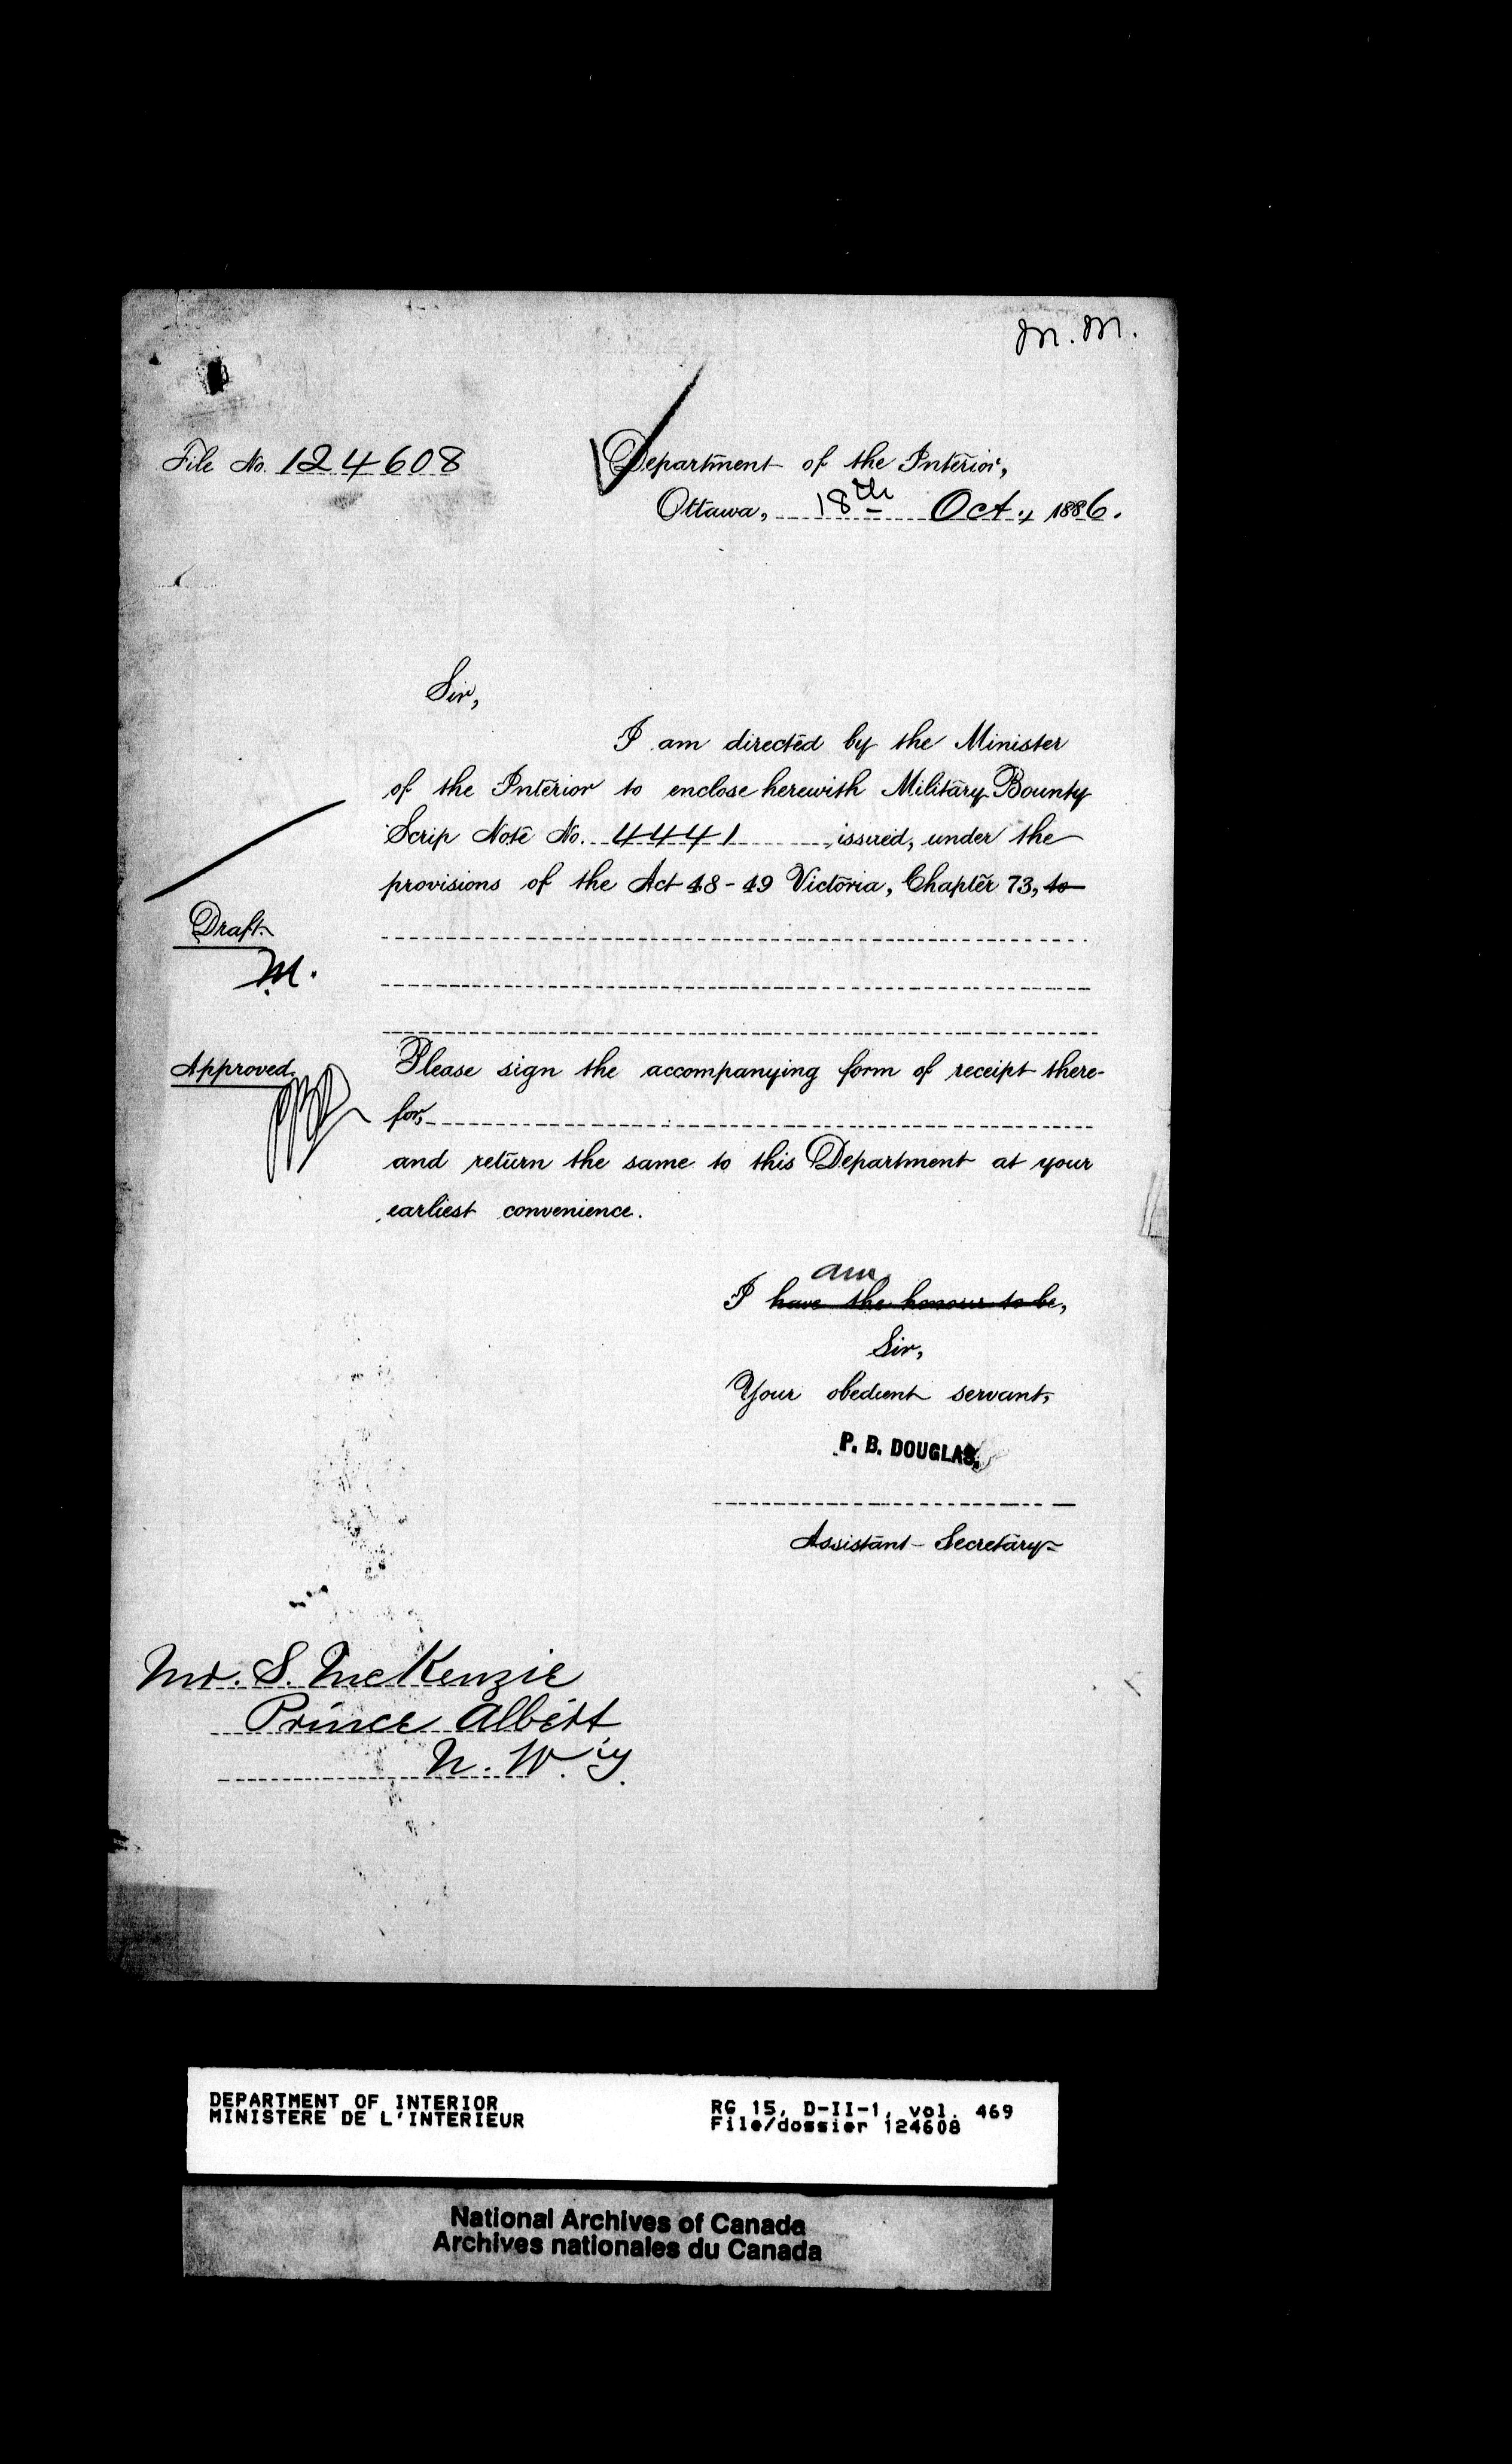 M.M.
File No. 124608
Department of the Interior,
Ottawa, 18th Oct., 1886.
Sir,
I am directed by the Minister
of the Interior to enclose herewith Military Bounty
Scrip Note No. 4441 issued, under the
provisions of the Act 48-49 Victoria, Chapter 73, to
Draft.
M.
Approved.
Please sign the accompanying form of receipt there-
for,
and return the same to this Department at your
earliest convenience.
am
I have the honour to be,
Sir,
Your obedient servant,
P. B. DOUGLAS,
Assistant Secretary
Mr. S. McKenzie
Prince Albert
N. W. Ty.
DEPARTMENT OF INTERIOR
MINISTERE DE L'INTERIEUR
RG 15, D-II-1, vol. 469
File/dossier 124608
National Archives of Canada
Archives nationales du Canada